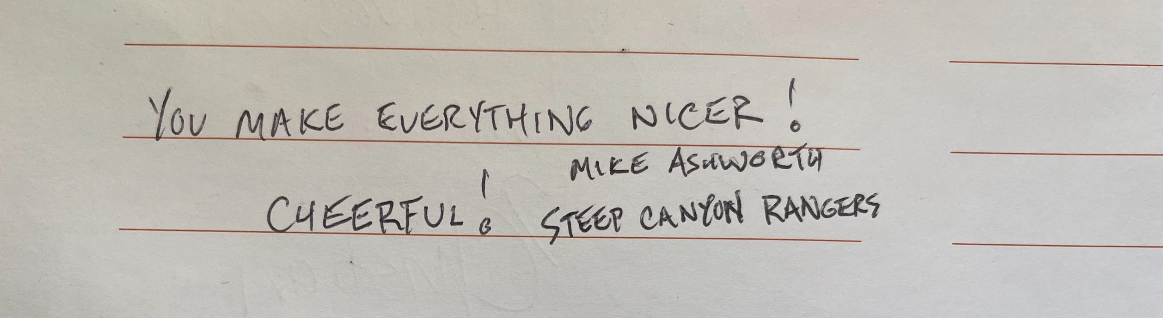 YOU MAKE EVERYTHING NICER!
MIKE ASHWORTH
CHEERFUL! STEEP CANYON RANGERS